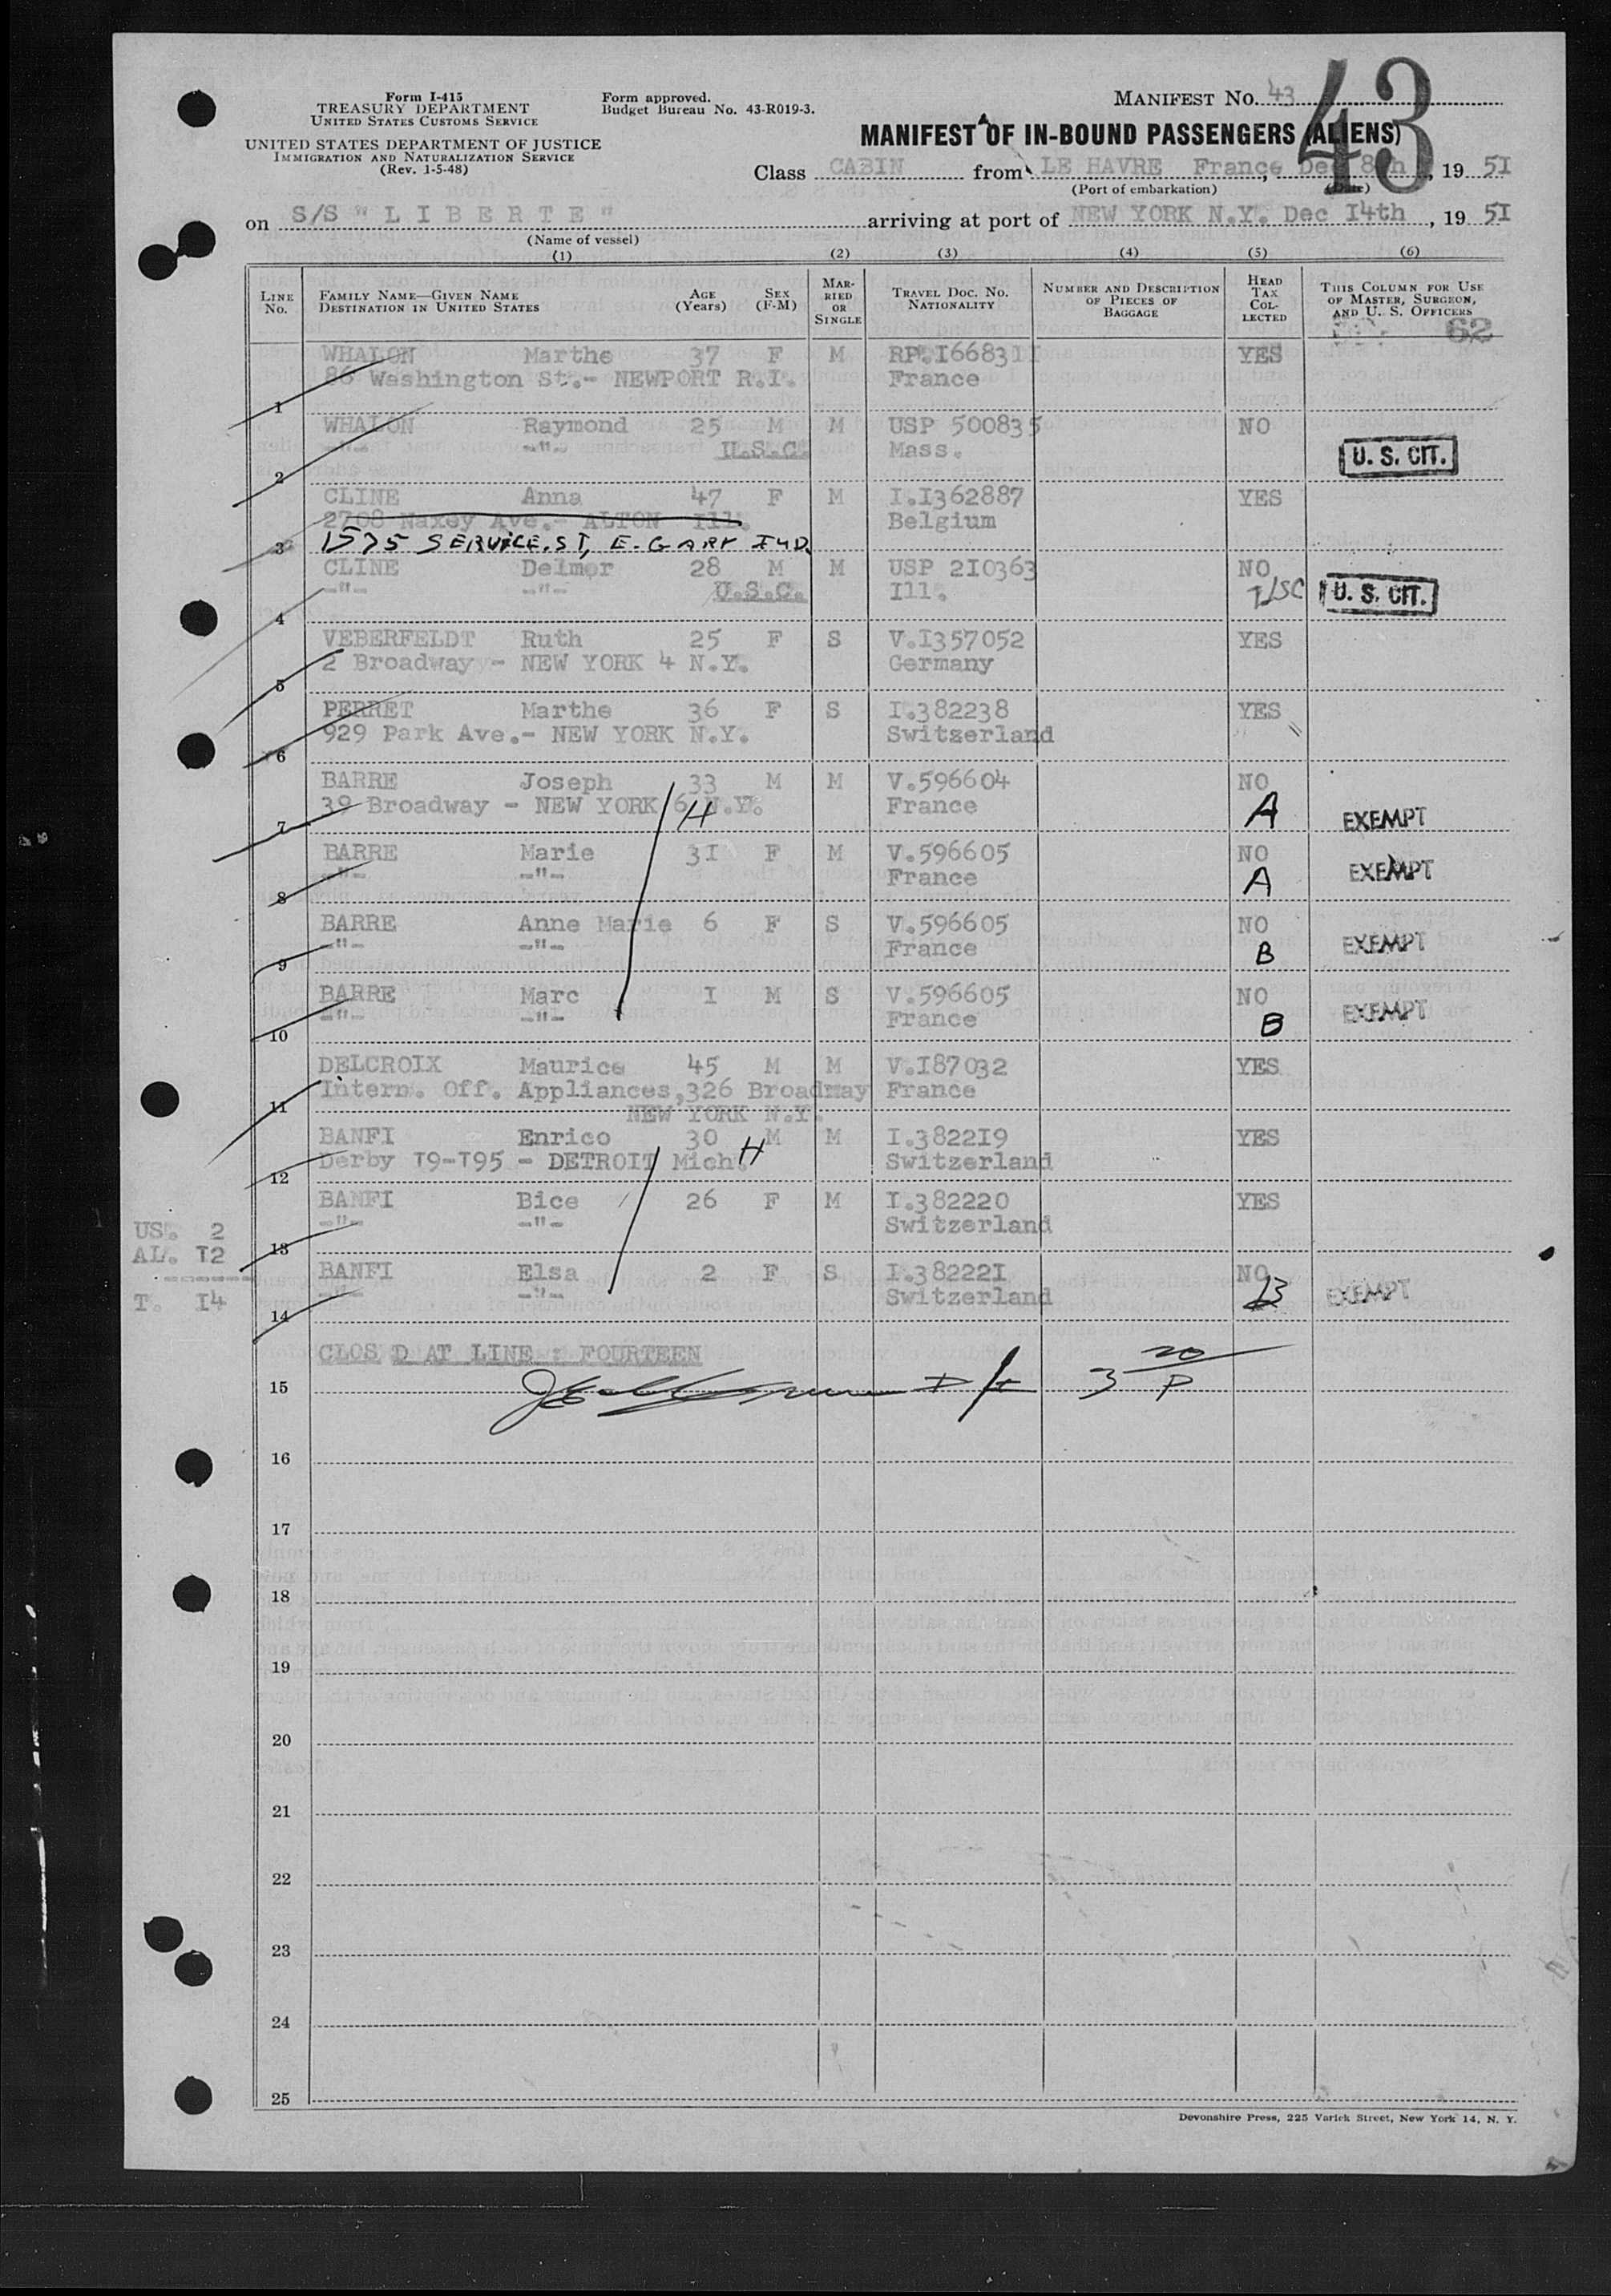 Form I-415
TREASURY DEPARTMENT
UNITED STATES CUSTOMS SERVICE
UNITED STATES DEPARTMENT OF JUSTICE
IMMIGRATION AND NATURALIZATION SERVICE
(Rev. 1-5-48)
Form approved.
Budget Bureau No. 43-R019-3.
MANIFEST NO. 43
43
MANIFEST OF IN-BOUND PASSENGERS (ALIENS)
Class CABIN from LE HAVRE France, Dec 8th, 1951
(Port of embarkation) (Date)
on S/S "LIBERTE" arriving at port of NEW YORK N.Y. Dec I4th, 1951
(Name of vessel)
(1) (2) (3) (4) (5) (6)
LINE No. FAMILY NAME—GIVEN NAME DESTINATION IN UNITED STATES AGE (Years) SEX (F-M) MARRIED OR SINGLE TRAVEL DOC. NO. NATIONALITY NUMBER AND DESCRIPTION OF PIECES OF BAGGAGE HEAD TAX COLLECTED THIS COLUMN FOR USE OF MASTER, SURGEON, AND U. S. OFFICERS
62
WHALON Marthe 37 F M RP.I66831I YES
86 Washington St.- NEWPORT R.I. France
1
WHALON Raymond 25 M M USP 500835 NO
-"- -"- U.S.C. Mass. U. S. CIT.
2
CLINE Anna 47 F M I.I362887 YES
2708 Naxey Ave.- ALTON Ill. Belgium
3 1575 SERVICE.ST, E. GARY IND.
CLINE Delmer 28 M M USP 2I0363 NO
-"- -"- U.S.C. Ill. USC U. S. CIT.
4
VEBERFELDT Ruth 25 F S V.I357052 YES
2 Broadway - NEW YORK 4 N.Y. Germany
5
PERRET Marthe 36 F S I.382238 YES
929 Park Ave.- NEW YORK N.Y. Switzerland
6
BARRE Joseph 33 M M V.596604 NO
39 Broadway - NEW YORK 6 N.Y. H France A EXEMPT
7
BARRE Marie 3I F M V.596605 NO
-"- -"- France A EXEMPT
8
BARRE Anne Marie 6 F S V.596605 NO
-"- -"- France B EXEMPT
9
BARRE Marc I M S V.596605 NO
-"- -"- France B EXEMPT
10
DELCROIX Maurice 45 M M V.I87032 YES
Intern. Off. Appliances,326 Broadway France
11 NEW YORK N.Y.
BANFI Enrico 30 M M I.3822I9 YES
Derby T9-T95 - DETROIT Mich. H Switzerland
12
BANFI Bice 26 F M I.382220 YES
-"- -"- Switzerland
13
BANFI Elsa 2 F S I.38222I NO
-"- -"- Switzerland B EXEMPT
14
US. 2
AL. I2
T. I4
CLOS D AT LINE : FOURTEEN
15 3 20 P
16
17
18
19
20
21
22
23
24
25
Devonshire Press, 225 Varick Street, New York 14, N. Y.